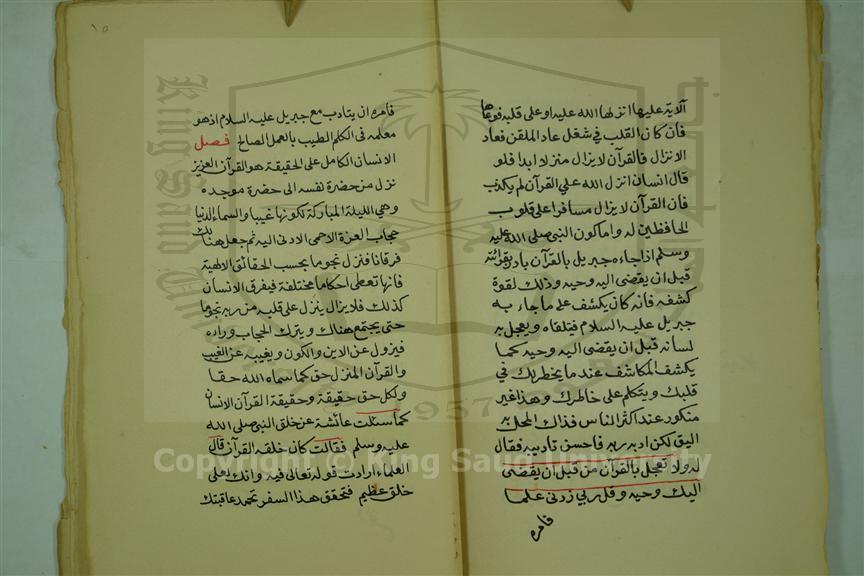 آلاية عليها انزلها الله عليه او على قلبه فوعاها
فان كان القلب في شغل عاد الملقن فعاد
الانزال فالقرآن لا يزال منزلا ابدا فلو
قال انسان انزل الله علي القرآن لم يكذب
فان القرآن لا يزال مسافرا على قلوب
الحافظين له واما كون النبي صلى الله عليه
وسلم اذا جاءه جبريل بالقرآن بادر بقرائته
قبل ان يقضى اليه وحيه وذلك لقوة
كشفه فانه كان يكشف على ما جاء به
جبريل عليه السلام فتلقاه ويعجل به
لسانه قبل ان يقضى اليه وحيه كما
يكشف المكاشف عند ما يخطر بك في
قلبك ويتكلم على خاطرك وهذا غير
منكور عند اكثر الناس فذاك المحل به
اليق لكن ادبه ربه فاحسن تاديبه فقال
له ولا تعجل بالقرآن من قبل ان يقضى
اليك وحيه وقل ربي زدني علما
فامره
١٥
فامره ان يتادب مع جبريل عليه السلام اذ هو
معلمه في الكلم الطيب بالعمل الصالح فصل
الانسان الكامل على الحقيقة هو القرآن العزيز
نزل من حضرة نفسه الى حضرة موجده
وهي الليلة المباركة لكونها غيبا والسماء الدنيا
حجاب العزة الاحمى الادنى اليه ثم جعل هنالك
فرقانا فنزل نجوما بحسب الحقائق الالهية
فانها تعطى احكاما مختلفة فيفرق الانسان
كذلك فلا يزال ينزل على قلبه من ربه نجوما
حتى يجتمع هناك ويترك الحجاب وراده
فيزول عن الاين والكون ويغيب عن الغيب
والقرآن المنزل حق كما سماه الله حقا
ولكل حق حقيقة وحقيقة القرآن الانسان
كما سئلت عائشة عن خلق النبي صلى الله
عليه وسلم فقالت كان خلقه القرآن قال
العلماء ارادت قوله تعالى فيه وانك لعلى
خلق عظيم فتحقق هذا السفر تحمد عاقبتك
Copyright © King Saud University
1957